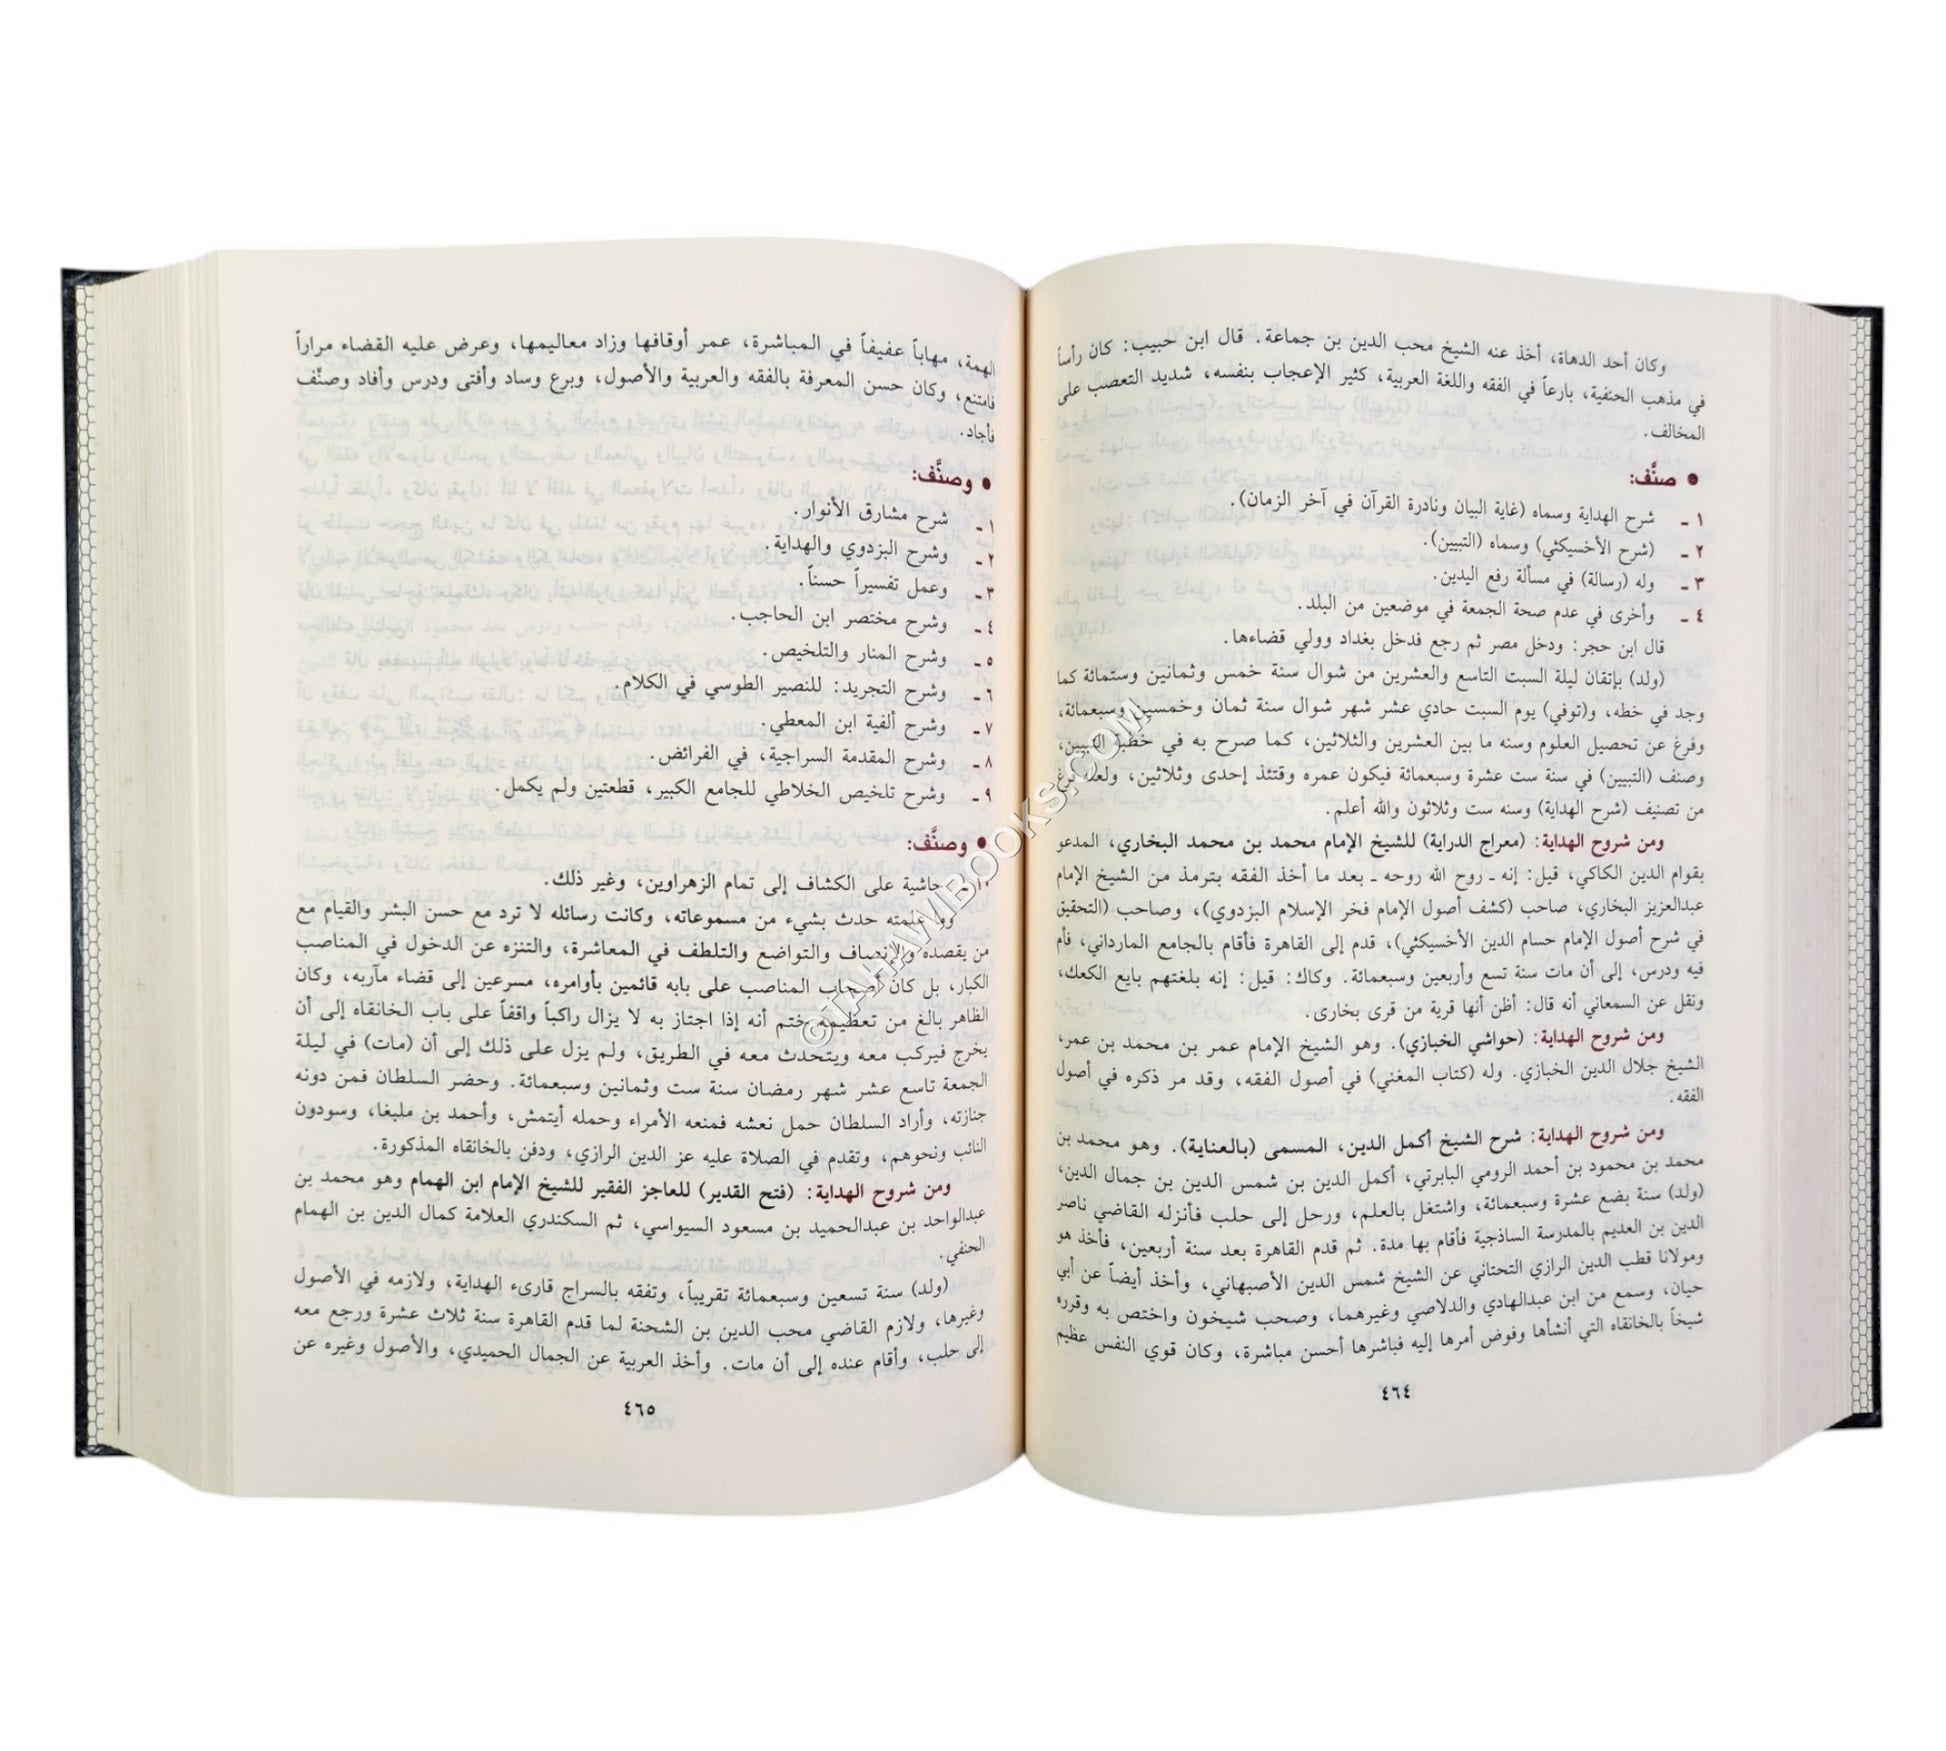 وكان أحد الدهاة، أخذ عنه الشيخ محب الدين بن جماعة. قال ابن حبيب: كان رأساً
في مذهب الحنفية، بارعاً في الفقه واللغة العربية، كثير الإعجاب بنفسه، شديد التعصب على
المخالف.
• صنَّف:
١ ـ شرح الهداية وسماه (غاية البيان ونادرة القرآن في آخر الزمان).
٢ ـ (شرح الأخسيكثي) وسماه (التبيين).
٣ ـ وله (رسالة) في مسألة رفع اليدين.
٤ ـ وأخرى في عدم صحة الجمعة في موضعين من البلد.
قال ابن حجر: ودخل مصر ثم رجع فدخل بغداد وولي قضاءها.
(ولد) بإتقان ليلة السبت التاسع والعشرين من شوال سنة خمس وثمانين وستمائة كما
وجد في خطه، و(توفي) يوم السبت حادي عشر شهر شوال سنة ثمان وخمسين وسبعمائة،
وفرغ عن تحصيل العلوم وسنه ما بين العشرين والثلاثين، كما صرح به في خطبة التبيين،
وصنف (التبيين) في سنة ست عشرة وسبعمائة فيكون عمره وقتئذ إحدى وثلاثين، ولعله فرغ
من تصنيف (شرح الهداية) وسنه ست وثلاثون والله أعلم.
ومن شروح الهداية: (معراج الدراية) للشيخ الإمام محمد بن محمد البخاري، المدعو
بقوام الدين الكاكي، قيل: إنه ـ روح الله روحه ـ بعد ما أخذ الفقه بترمذ من الشيخ الإمام
عبدالعزيز البخاري، صاحب (كشف أصول الإمام فخر الإسلام البزدوي)، وصاحب (التحقيق
في شرح أصول الإمام حسام الدين الأخسيكثي)، قدم إلى القاهرة فأقام بالجامع المارداني، فأم
فيه ودرس، إلى أن مات سنة تسع وأربعين وسبعمائة. وكاك: قيل: إنه بلغتهم بايع الكعك،
ونقل عن السمعاني أنه قال: أظن أنها قرية من قرى بخارى.
ومن شروح الهداية: (حواشي الخبازي). وهو الشيخ الإمام عمر بن محمد بن عمر،
الشيخ جلال الدين الخبازي. وله (كتاب المغني) في أصول الفقه، وقد مر ذكره في أصول
الفقه.
ومن شروح الهداية: شرح الشيخ أكمل الدين، المسمى (بالعناية). وهو محمد بن
محمد بن محمود بن أحمد الرومي البابرتي، أكمل الدين بن شمس الدين بن جمال الدين،
(ولد) سنة بضع عشرة وسبعمائة، واشتغل بالعلم، ورحل إلى حلب فأنزله القاضي ناصر
الدين بن العديم بالمدرسة الساذجية فأقام بها مدة. ثم قدم القاهرة بعد سنة أربعين، فأخذ هو
ومولانا قطب الدين الرازي التحتاني عن الشيخ شمس الدين الأصبهاني، وأخذ أيضاً عن أبي
حيان، وسمع من ابن عبدالهادي والدلاصي وغيرهما، وصحب شيخون واختص به وقرره
شيخاً بالخانقاه التي أنشأها وفوض أمرها إليه فباشرها أحسن مباشرة، وكان قوي النفس عظيم
٤٦٤
الهمة، مهاباً عفيفاً في المباشرة، عمر أوقافها وزاد معاليمها، وعرض عليه القضاء مراراً
فامتنع، وكان حسن المعرفة بالفقه والعربية والأصول، وبرع وساد وأفتى ودرس وأفاد وصنّف
فأجاد.
• وصنَّف:
١ ـ شرح مشارق الأنوار.
٢ ـ وشرح البزدوي والهداية.
٣ ـ وعمل تفسيراً حسناً.
٤ ـ وشرح مختصر ابن الحاجب.
٥ ـ وشرح المنار والتلخيص.
٦ ـ وشرح التجريد: للنصير الطوسي في الكلام.
٧ ـ وشرح ألفية ابن المعطي.
٨ ـ وشرح المقدمة السراجية، في الفرائض.
٩ ـ وشرح تلخيص الخلاطي للجامع الكبير، قطعتين ولم يكمل.
• وصنَّف:
١٠ ـ حاشية على الكشاف إلى تمام الزهراوين، وغير ذلك.
وما علمته حدث بشيء من مسموعاته، وكانت رسائله لا ترد مع حسن البشر والقيام مع
من يقصده والإنصاف والتواضع والتلطف في المعاشرة، والتنزه عن الدخول في المناصب
الكبار، بل كان أصحاب المناصب على بابه قائمين بأوامره، مسرعين إلى قضاء مآربه، وكان
الظاهر بالغ من تعظيمه ختم أنه إذا اجتاز به لا يزال راكباً واقفاً على باب الخانقاه إلى أن
يخرج فيركب معه ويتحدث معه في الطريق، ولم يزل على ذلك إلى أن (مات) في ليلة
الجمعة تاسع عشر شهر رمضان سنة ست وثمانين وسبعمائة. وحضر السلطان فمن دونه
جنازته، وأراد السلطان حمل نعشه فمنعه الأمراء وحمله أيتمش، وأحمد بن ملبغا، وسودون
النائب ونحوهم، وتقدم في الصلاة عليه عز الدين الرازي، ودفن بالخانقاه المذكورة.
ومن شروح الهداية: (فتح القدير) للعاجز الفقير للشيخ الإمام ابن الهمام وهو محمد بن
عبدالواحد بن عبدالحميد بن مسعود السيواسي، ثم السكندري العلامة كمال الدين بن الهمام
الحنفي.
(ولد) سنة تسعين وسبعمائة تقريباً، وتفقه بالسراج قارىء الهداية، ولازمه في الأصول
وغيرها، ولازم القاضي محب الدين بن الشحنة لما قدم القاهرة سنة ثلاث عشرة ورجع معه
إلى حلب، وأقام عنده إلى أن مات. وأخذ العربية عن الجمال الحميدي، والأصول وغيره عن
٤٦٥
©TAHAWIBOOKS.COM